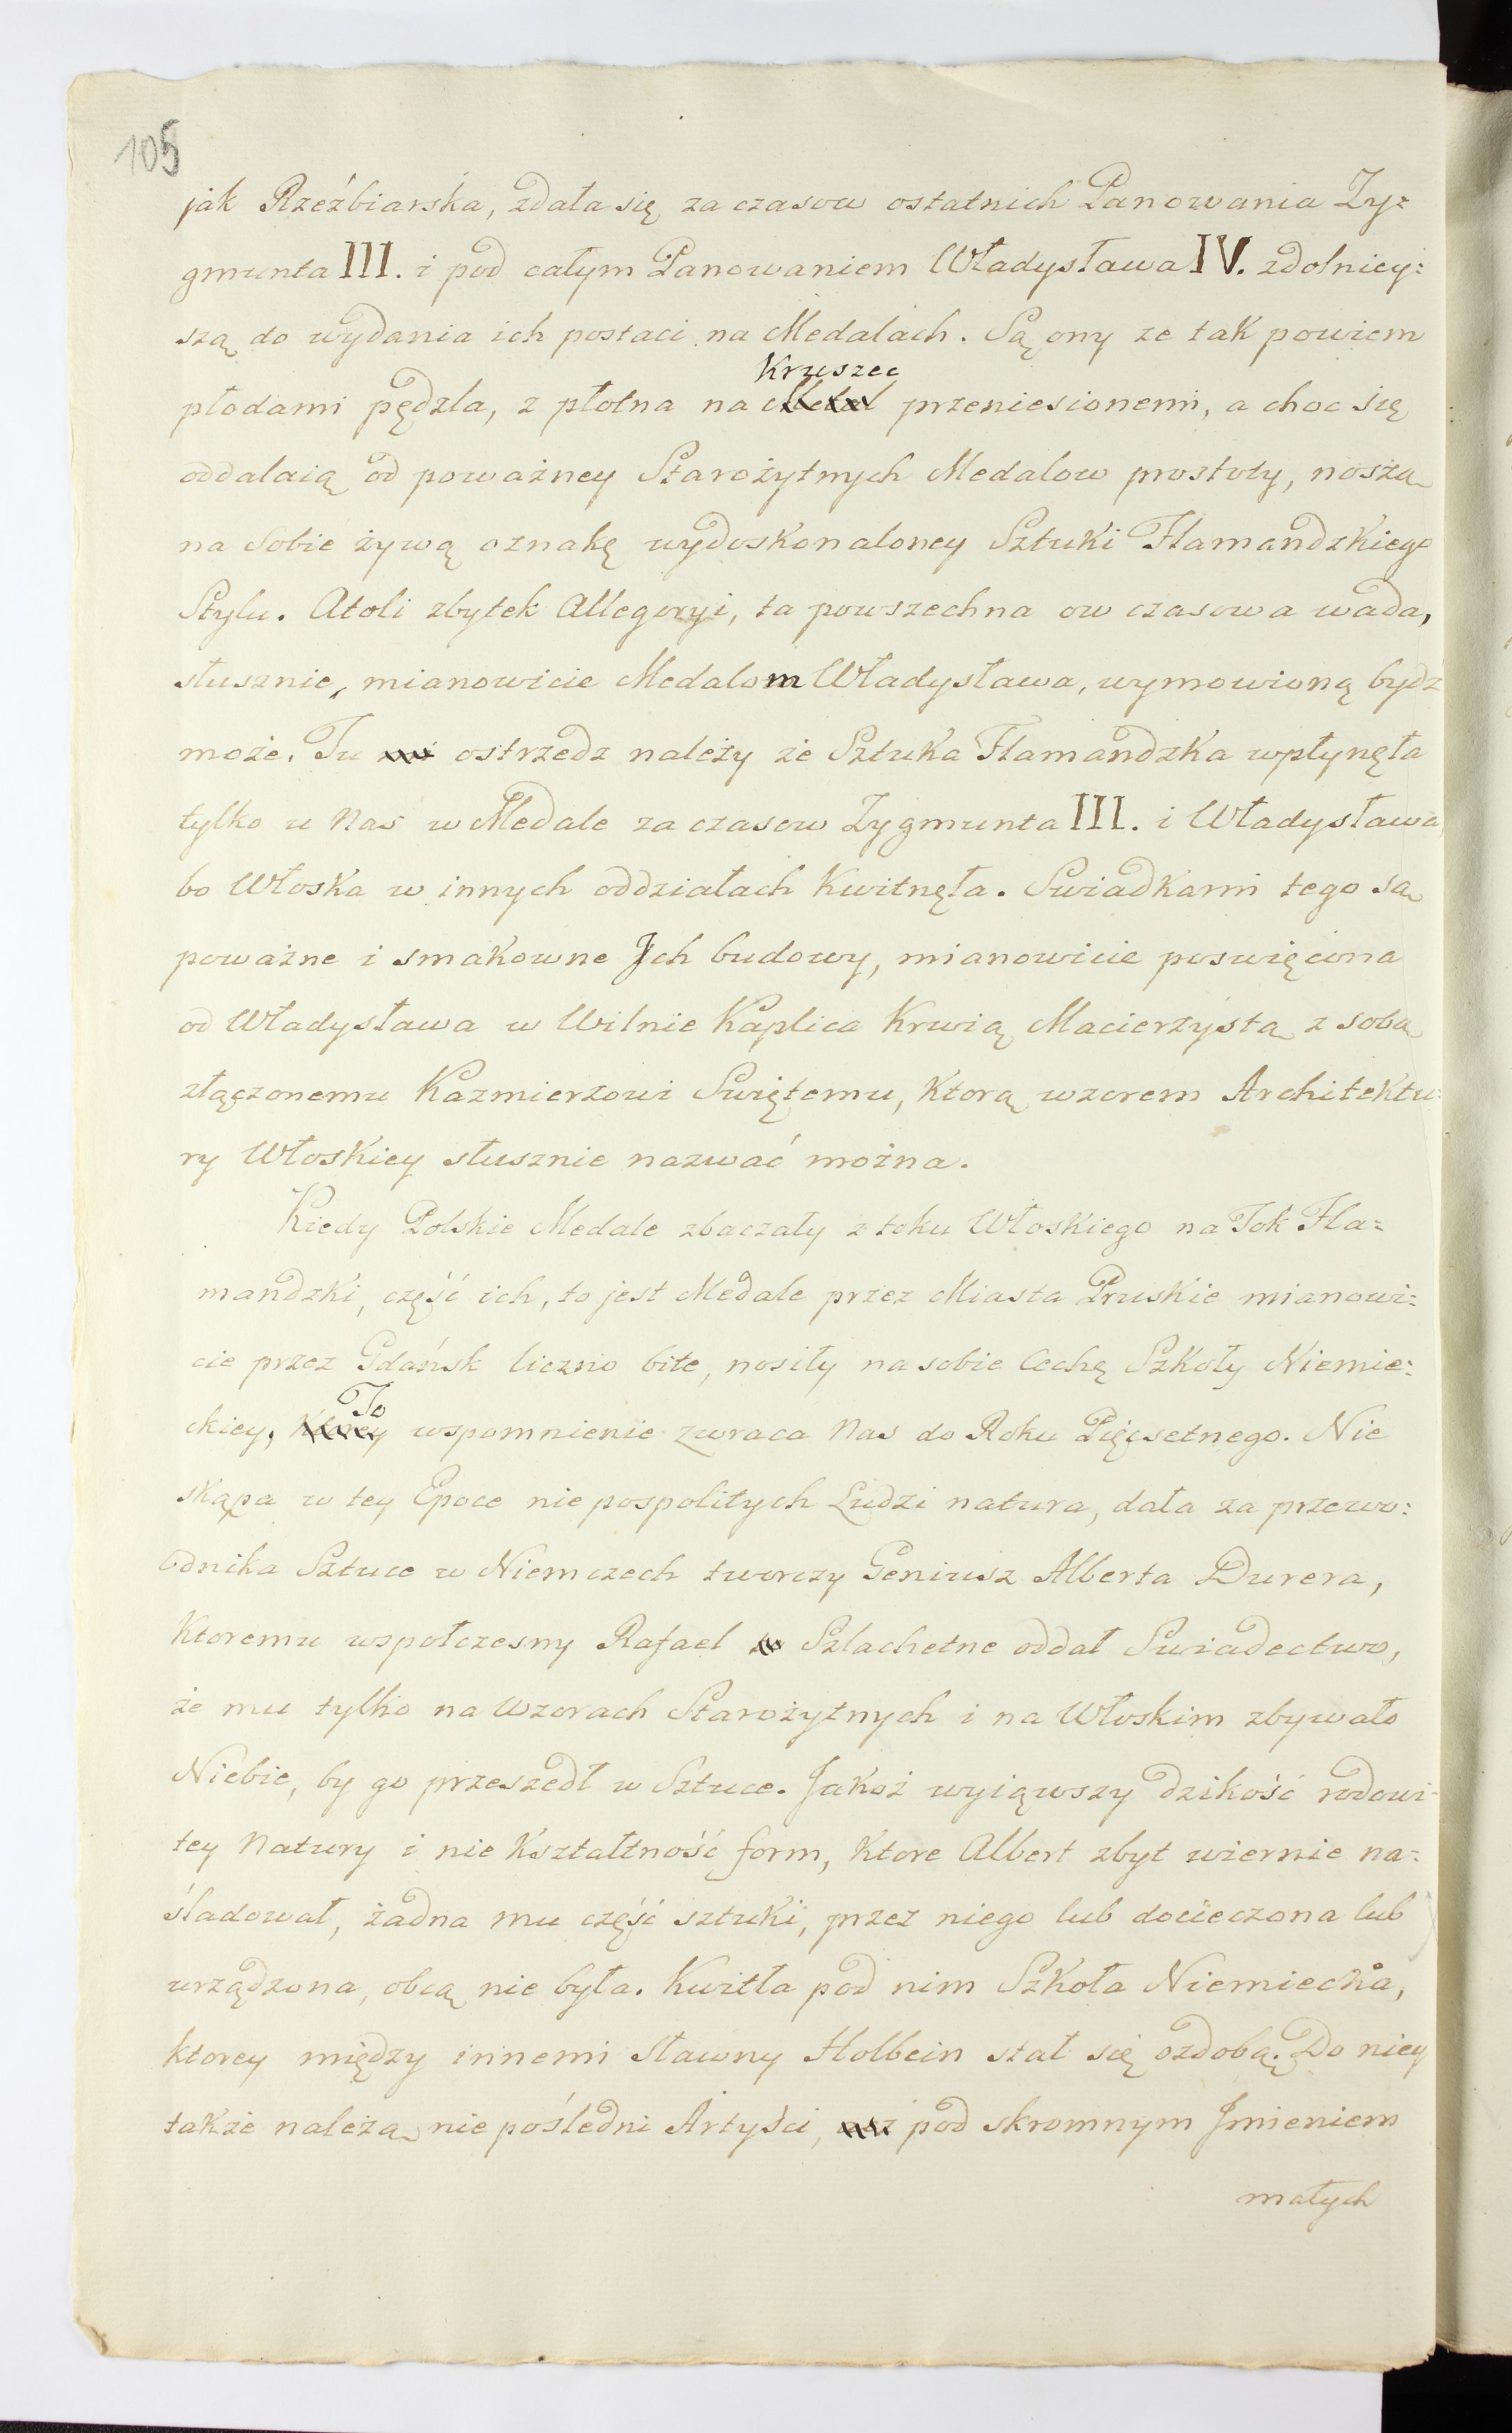 105
jak Rzeźbiarska, zdała się za czasow ostatnich Panowania Zy=
gmunta III. i pod całym Panowaniem Władysława IV. zdolniey=
szą do wydania ich postaci na Medalach. Są ony ze tak powiem
Kruszec
płodami pędzla, z płotna na Metal przeniesionemi, a choc się
oddalaią od poważney Starożytnych Medalow prostoty, noszą
na sobie żywą oznakę wydoskonaloney Sztuki Flamandzkiego
Stylu. Atoli zbytek Allegoryi, ta powszechna ow czasowa wada,
słusznie, mianowicie Medalom Władysława, wymowioną bydź
może. Tu ostrzedz należy że Sztuka Flamandzka wpłynęła
tylko u Nas w Medale za czasow Zygmunta III. i Władysława
bo Włoska w innych oddziałach Kwitnęła. Swiadkami tego są
poważne i smakowne Jch budowy, mianowicie poswięcona
od Władysława w Wilnie Kaplica Krwią Macierzystą z sobą
złączonemu Kazmierzowi Swiętemu, Ktorą wzorem Architektu=
ry Włoskiey słusznie nazwać można.
Kiedy Polskie Medale zbaczały z toku Włoskiego na Tok Fla=
mandzki, część ich, to jest Medale przez Miasta Pruskie mianowi=
cie przez Gdańsk liczno bite, nosiły na sobie Cechę Szkoły Niemie=
To
ckiey. Ktorey wspomnienie zwraca Nas do Roku Pięcsetnego. Nie
skąpa w tey Epoce nie pospolitych Ludzi natura, dała za przewo=
dnika Sztuce w Niemczech tworczy Geniusz Alberta Durera,
Ktoremu wspołczesny Rafael Szlachetne oddał Swiadectwo,
że mu tylko na Wzorach Starożytnych i na Włoskim zbywało
Niebie, by go przeszedł w Sztuce. Jakoż wyiąwszy dzikość rodowi=
tey Natury i nie Kształtność form, Ktore Albert zbyt wiernie na=
śladował, żadna mu część sztuki, przez niego lub docieczona lub
urządzona, obcą nie była. Kwitła pod nim Szkoła Niemiecka,
ktorey między innemi sławny Holbein stał się ozdobą. Do niey
także należą nie pośledni Artyści, pod skromnym Jmieniem
małych